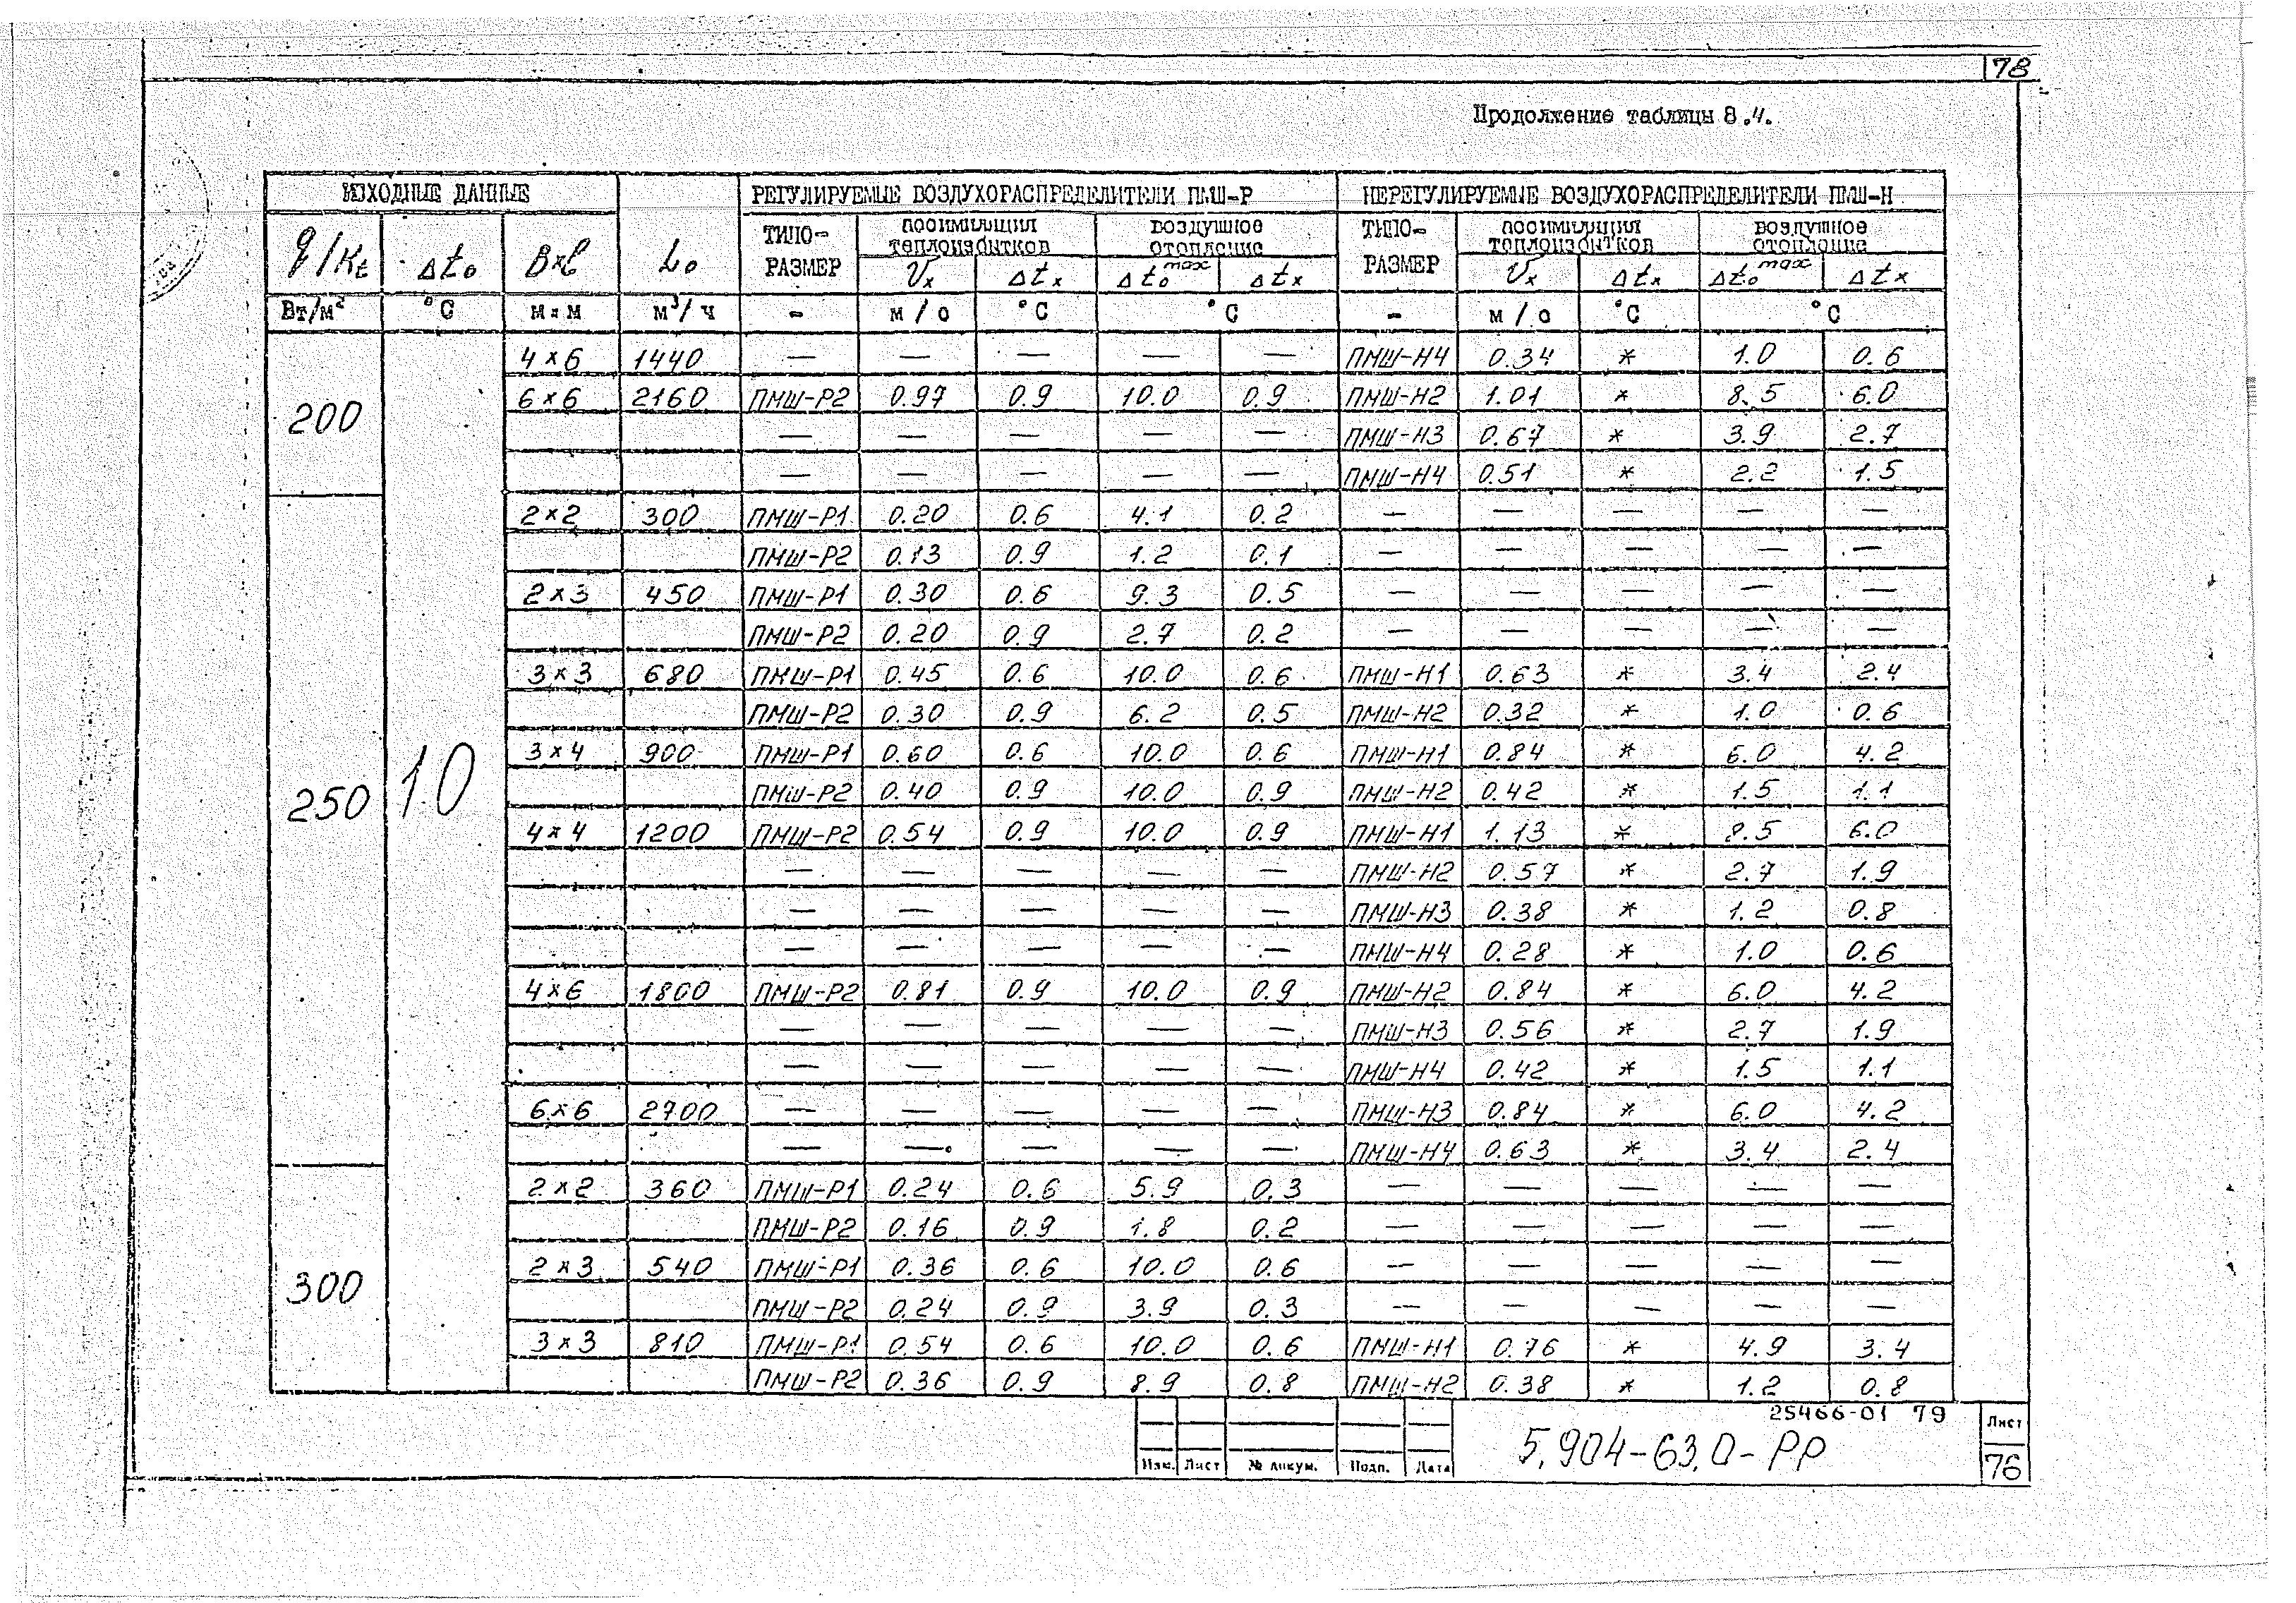 78
Продолжение таблицы 8.4.
ИСХОДНЫЕ ДАННЫЕ L₀ РЕГУЛИРУЕМЫЕ ВОЗДУХОРАСПРЕДЕЛИТЕЛИ ПМШ-Р НЕРЕГУЛИРУЕМЫЕ ВОЗДУХОРАСПРЕДЕЛИТЕЛИ ПМШ-Н
q/Kt Δt₀ В×ℓ ТИПО-РАЗМЕР ассимиляция теплоизбытков воздушное отопление ТИПО-РАЗМЕР ассимиляция теплоизбытков воздушное отопление
Vx Δtx Δt₀max Δtx Vx Δtx Δt₀max Δtx
Вт/м² °C м×м м³/ч - м/с °C °C - м/с °C °C
200 10 4×6 1440 — — — — — ПМШ-Н4 0.34 * 1.0 0.6
6×6 2160 ПМШ-Р2 0.97 0.9 10.0 0.9 ПМШ-Н2 1.01 * 8.5 6.0
— — — — — ПМШ-Н3 0.67 * 3.9 2.7
— — — — — ПМШ-Н4 0.51 * 2.2 1.5
250 2×2 300 ПМШ-Р1 0.20 0.6 4.1 0.2 — — — — —
ПМШ-Р2 0.13 0.9 1.2 0.1 — — — — —
2×3 450 ПМШ-Р1 0.30 0.6 9.3 0.5 — — — — —
ПМШ-Р2 0.20 0.9 2.7 0.2 — — — — —
3×3 680 ПМШ-Р1 0.45 0.6 10.0 0.6 ПМШ-Н1 0.63 * 3.4 2.4
ПМШ-Р2 0.30 0.9 6.2 0.5 ПМШ-Н2 0.32 * 1.0 0.6
3×4 900 ПМШ-Р1 0.60 0.6 10.0 0.6 ПМШ-Н1 0.84 * 6.0 4.2
ПМШ-Р2 0.40 0.9 10.0 0.9 ПМШ-Н2 0.42 * 1.5 1.1
4×4 1200 ПМШ-Р2 0.54 0.9 10.0 0.9 ПМШ-Н1 1.13 * 8.5 6.0
— — — — — ПМШ-Н2 0.57 * 2.7 1.9
— — — — — ПМШ-Н3 0.38 * 1.2 0.8
— — — — — ПМШ-Н4 0.28 * 1.0 0.6
4×6 1800 ПМШ-Р2 0.81 0.9 10.0 0.9 ПМШ-Н2 0.84 * 6.0 4.2
— — — — — ПМШ-Н3 0.56 * 2.7 1.9
— — — — — ПМШ-Н4 0.42 * 1.5 1.1
6×6 2700 — — — — — ПМШ-Н3 0.84 * 6.0 4.2
— — — — — ПМШ-Н4 0.63 * 3.4 2.4
300 2×2 360 ПМШ-Р1 0.24 0.6 5.9 0.3 — — — — —
ПМШ-Р2 0.16 0.9 1.8 0.2 — — — — —
2×3 540 ПМШ-Р1 0.36 0.6 10.0 0.6 — — — — —
ПМШ-Р2 0.24 0.9 3.9 0.3 — — — — —
3×3 810 ПМШ-Р1 0.54 0.6 10.0 0.6 ПМШ-Н1 0.76 * 4.9 3.4
ПМШ-Р2 0.36 0.9 8.9 0.8 ПМШ-Н2 0.38 * 1.2 0.8
25466-01 79
5.904-63.0-РР
Изм. Лист № докум. Подп. Дата
Лист
76